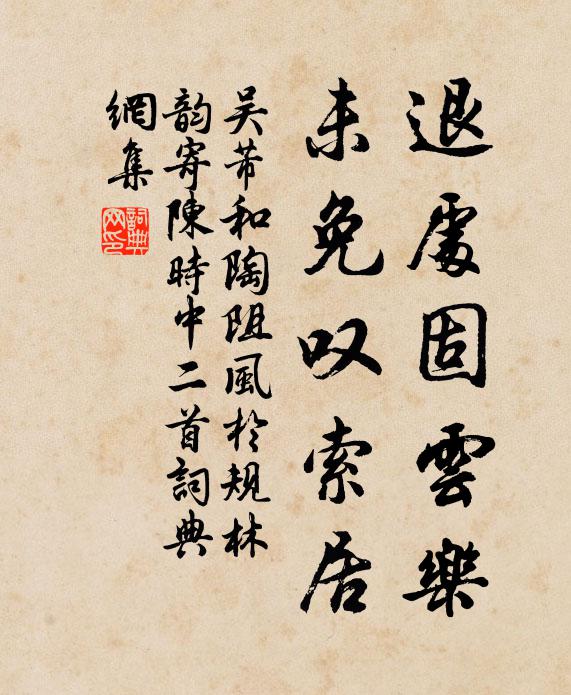 退處固雲樂
未免叹索居
吴芾和陶阻風於規林
韵寄陳時中二首詞典
網集
詞典
网印